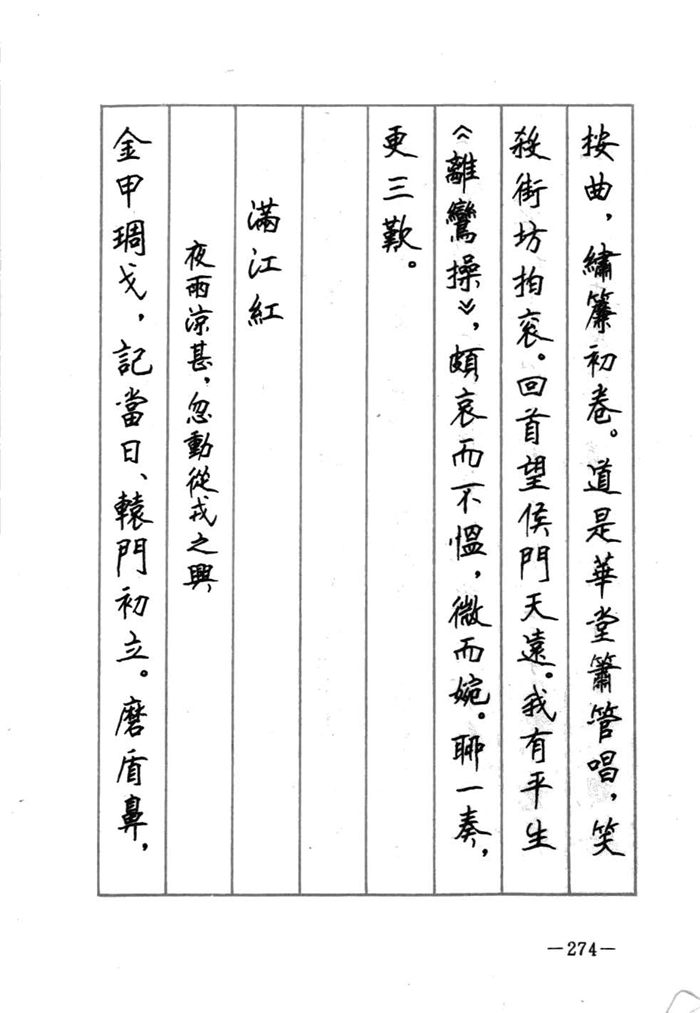 按曲，繡簾初卷。道是華堂簫管唱，笑
殺街坊拍衮。回首望侯門天遠。我有平生
《離鸞操》，頗哀而不慍，微而婉。聊一奏，
更三歎。
滿江紅
夜雨涼甚，忽動從戎之興
金甲琱戈，記當日、轅門初立。磨盾鼻，
—274—